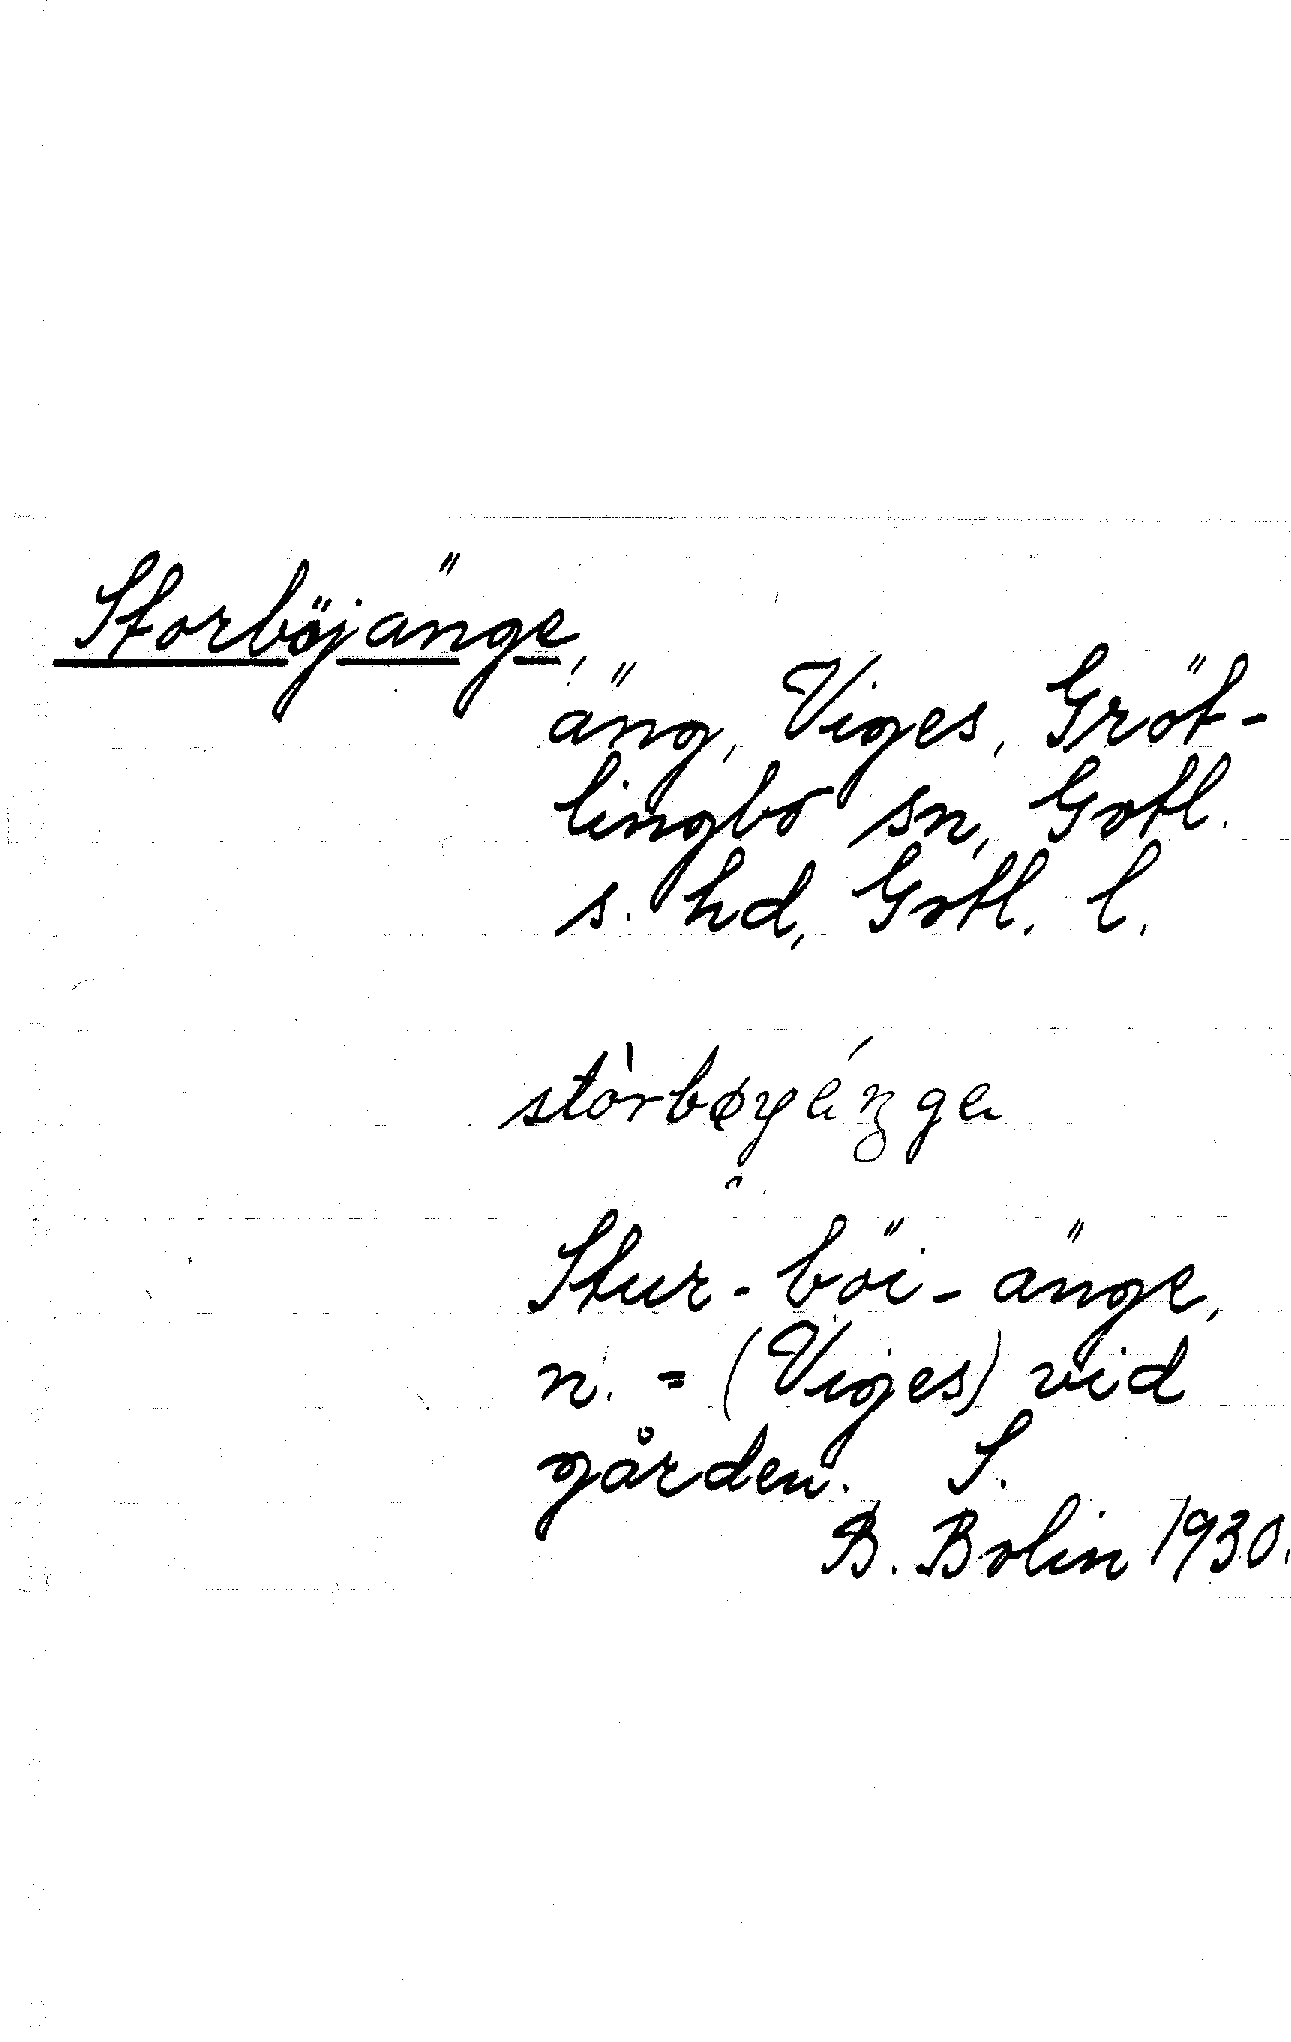 Storböjänge,
äng, Viges, Gröt-
lingbo sn, Gotl.
s. hd, Gotl. l.
Stur-böi-änge,
n. = (Viges) vid
gården. S.
B. Bolin 1930.